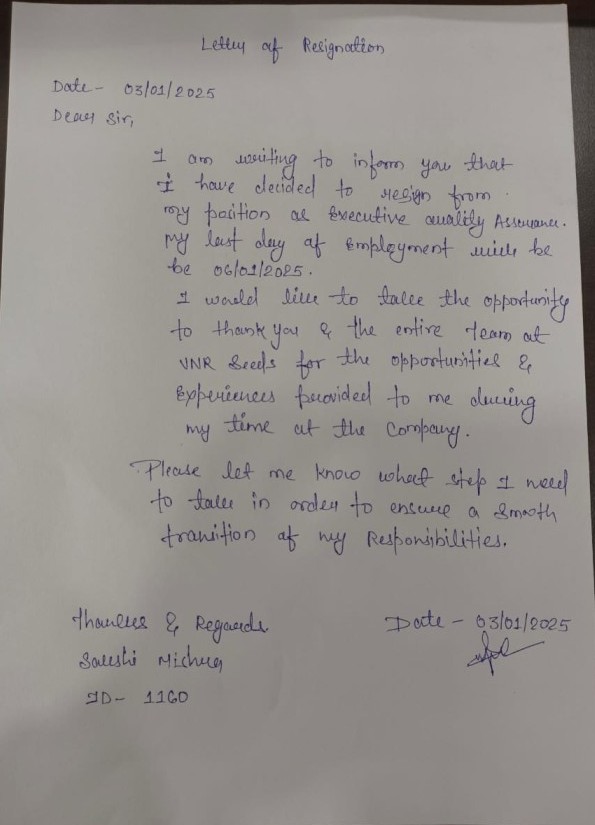 Letter of Resignation
Date - 03/01/2025
Dear Sir,
I am writing to inform you that
I have decided to resign from
my position as Executive Quality Assurance.
My last day of Employment will be
be 06/01/2025.
I would like to take the opportunity
to thank you & the entire Team at
VNR Seeds for the opportunities &
Experiences provided to me during
my time at the Company.
Please let me know what step I need
to take in order to ensure a smooth
transition of my Responsibilities.
Thanks & Regards
Date - 03/01/2025
ID- 1160